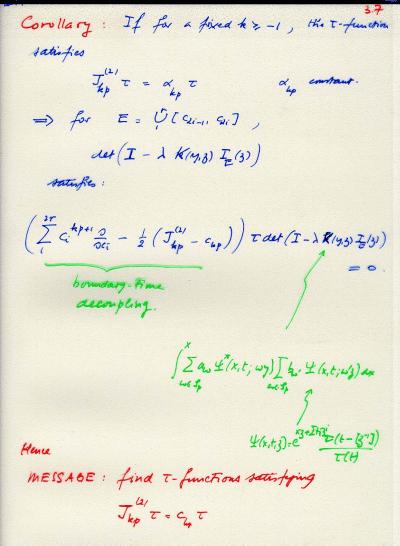 3.7
Corollary : If for a fixed k ≥ -1, the τ-function
satisfies
J_{kp}^{(2)} τ = α_{kp} τ α_{kp} constant.
⟹ for E = ⋃_1^r [c_{2i-1}, c_{2i}],
det(I - λ K(y,z) I_E(z))
satisfies:
(∑_1^{2r} c_i^{kp+1} ∂/∂c_i - 1/2 (J_{kp}^{(2)} - c_{kp})) τ det(I - λ K(y,z) I_E(z))
= 0.
boundary-time
decoupling.
∫^x ∑_{ω∈S_p} a_ω Ψ*(x,t;ωy) ∑_{ω∈S_p} b_{ω'} Ψ(x,t;ω'z) dx
Ψ(x,t,z) = e^{xz+∑t_i z^i} τ(t-[z^{-1}])/τ(t)
Hence
MESSAGE : find τ-functions satisfying
J_{kp}^{(2)} τ = c_{kp} τ